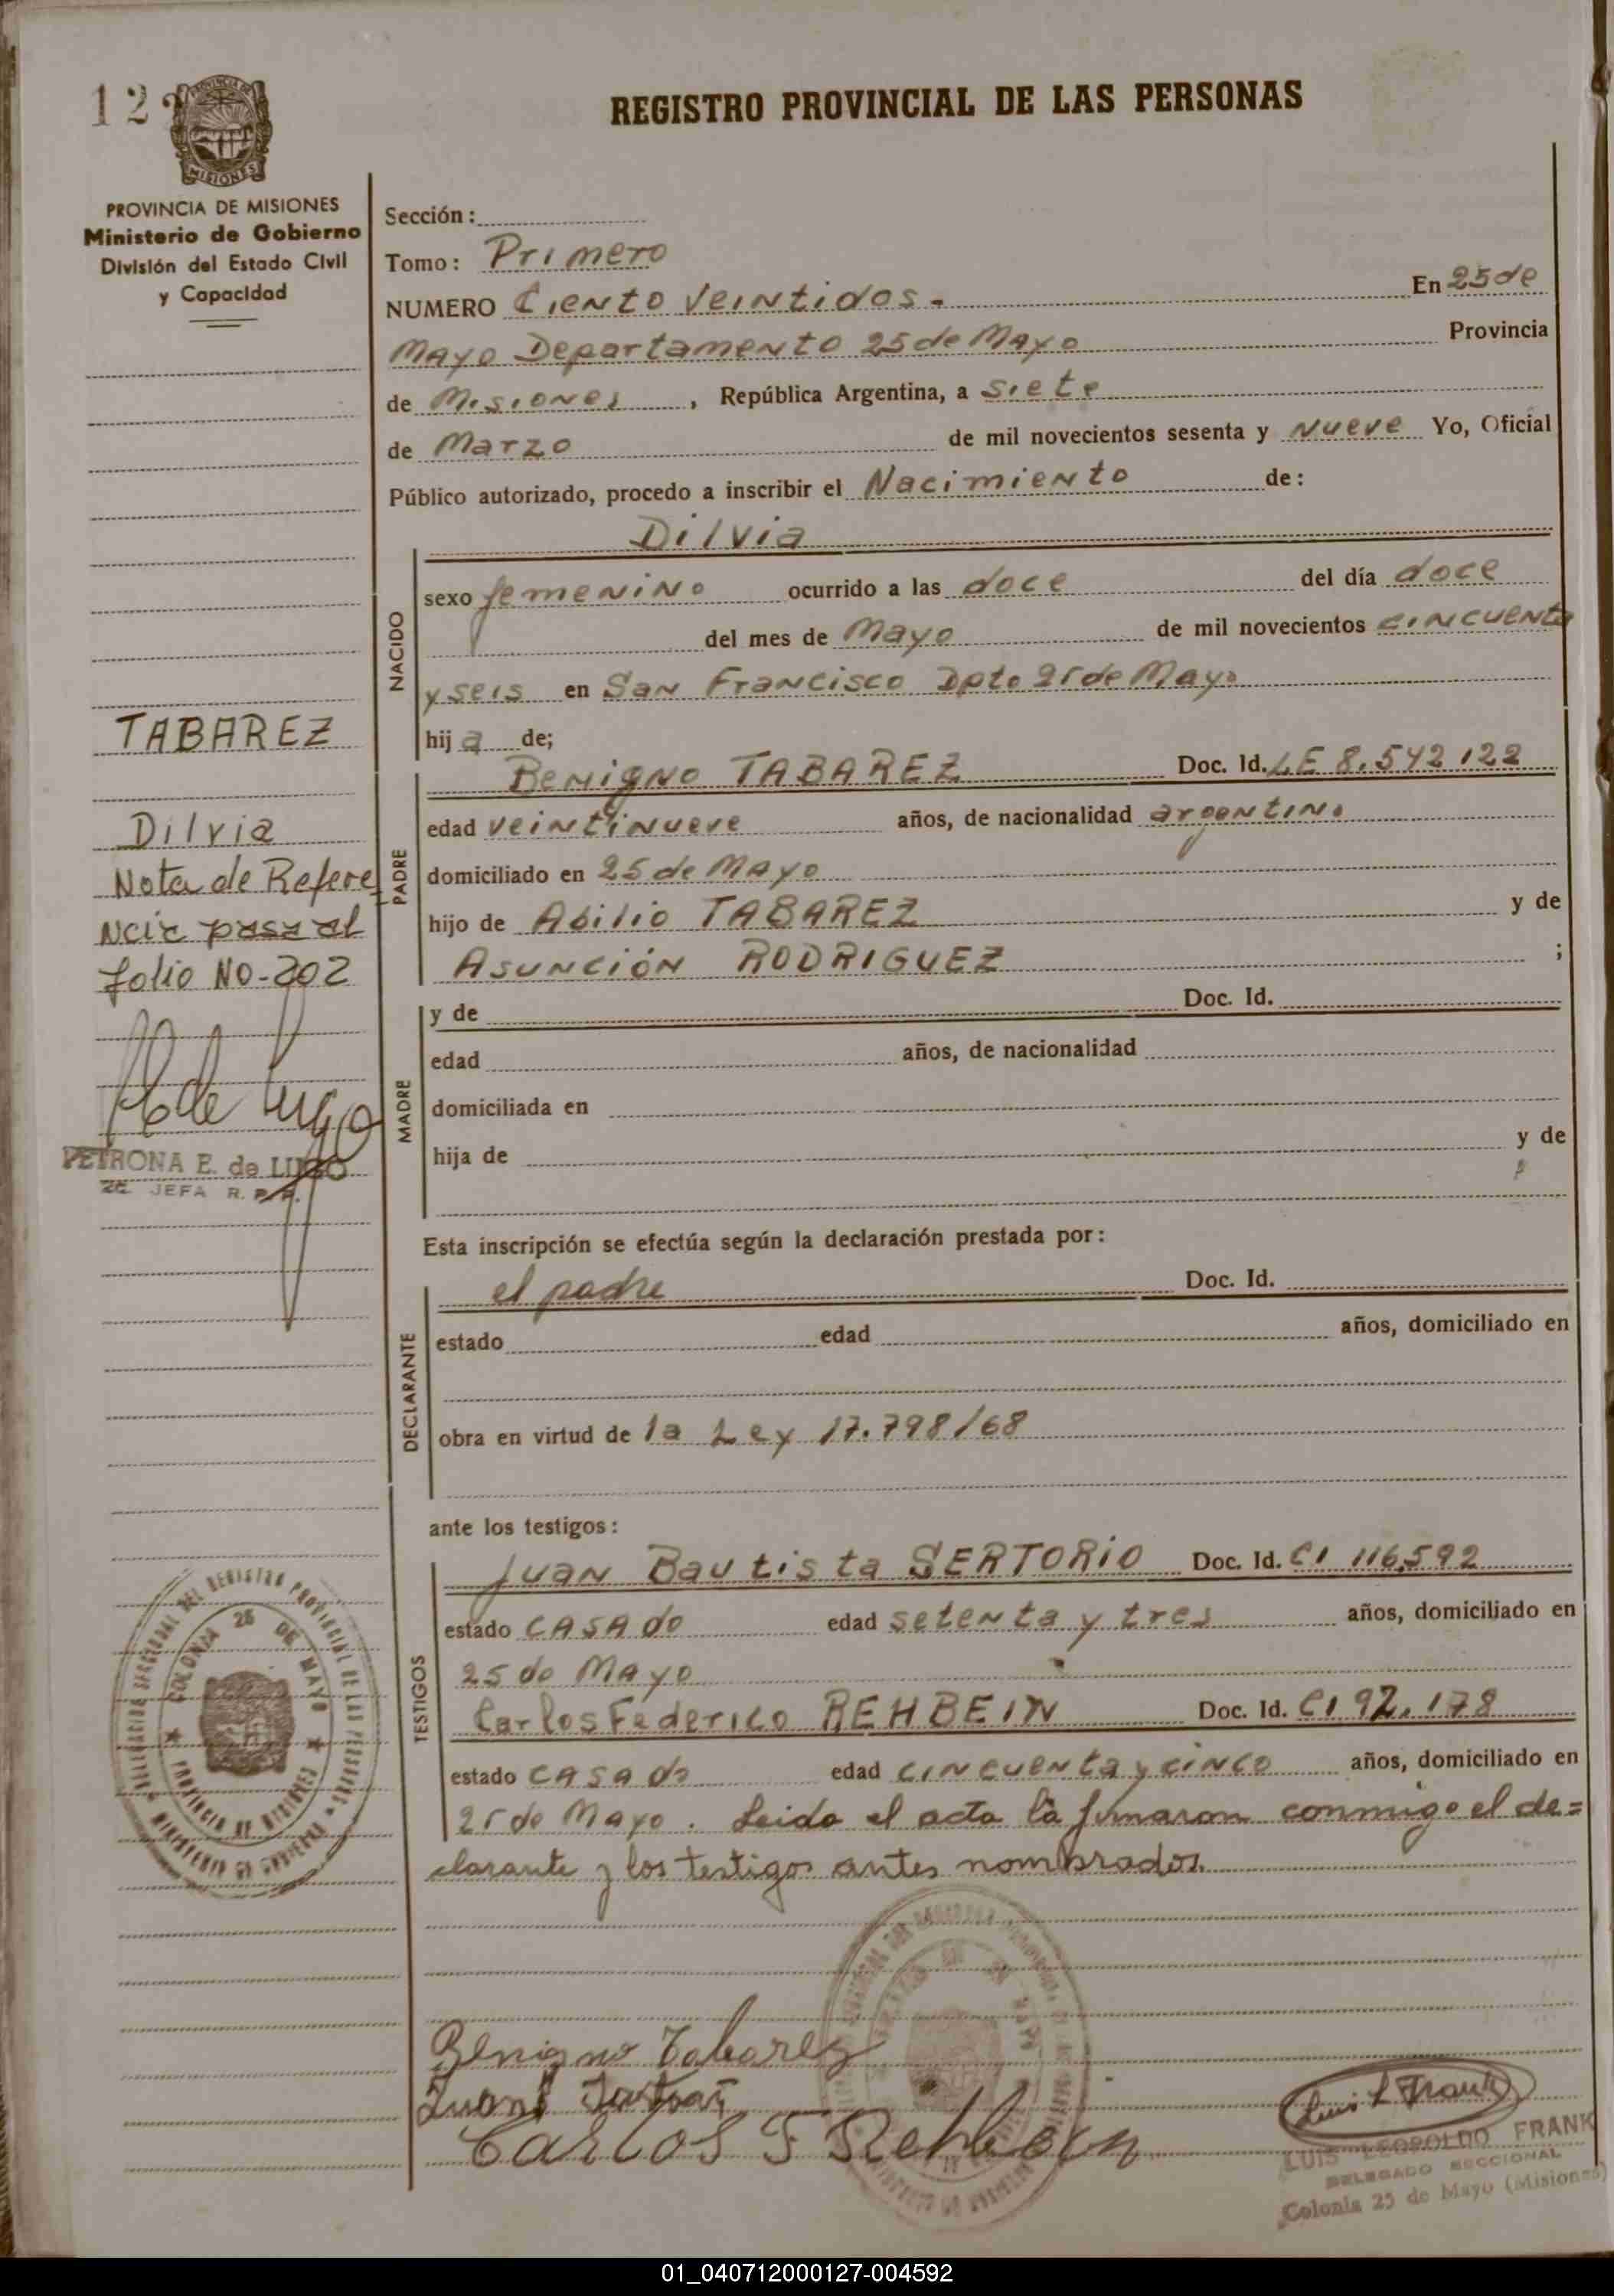 122
MISIONES
PROVINCIA DE MISIONES
Ministerio de Gobierno
División del Estado Civil
y Capacidad
REGISTRO PROVINCIAL DE LAS PERSONAS
Sección:
Tomo: Primero
NUMERO Ciento Veintidos.- En 25 de
Mayo Departamento 25 de Mayo Provincia
de Misiones, República Argentina, a siete
de Marzo de mil novecientos sesenta y Nueve Yo, Oficial
Público autorizado, procedo a inscribir el Nacimiento de:
Dilvia
NACIDO
sexo femenino ocurrido a las doce del día doce
del mes de Mayo de mil novecientos cincuenta
y seis en San Francisco Dpto 25 de Mayo
hija de;
TABAREZ
Dilvia
Nota de Refere
ncia pasa al
folio No-202
PETRONA E. de LUGO
2a. JEFA R. P. P.
PADRE
Benigno TABAREZ Doc. Id. LE 8.542.122
edad veintinueve años, de nacionalidad argentino
domiciliado en 25 de Mayo
hijo de Abilio TABAREZ y de
Asunción RODRIGUEZ ;
MADRE
y de Doc. Id.
edad años, de nacionalidad
domiciliada en
hija de y de
;
Esta inscripción se efectúa según la declaración prestada por:
DECLARANTE
el padre Doc. Id.
estado edad años, domiciliado en
obra en virtud de la Ley 17.798/68
ante los testigos:
TESTIGOS
Juan Bautista SERTORIO Doc. Id. CI 116.592
estado CASAdo edad setenta y tres años, domiciliado en
25 de Mayo
Carlos Federico REHBEIN Doc. Id. CI 92.178
estado CASAdo edad cincuenta y cinco años, domiciliado en
25 de Mayo. Leida el acta la firmaron conmigo el de=
clarante y los testigos antes nombrados.
COLONIA 25 DE MAYO
PROVINCIA DE MISIONES
Benigno Tabarez
Carlos F Rehbein
Luis L Frank
LUIS LEOPOLDO FRANK
DELEGADO SECCIONAL
Colonia 25 de Mayo (Misiones)
01_040712000127-004592